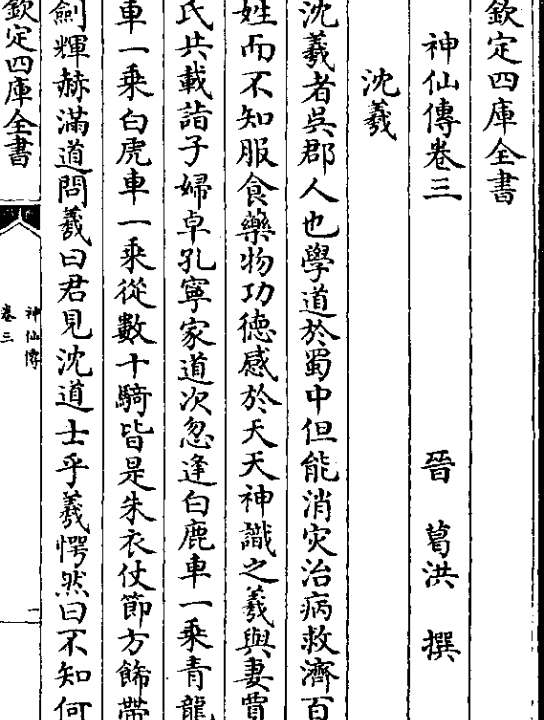 欽定四庫全書
神仙傳卷三
晉 葛洪 撰
沈羲
沈羲者吳郡人也學道於蜀中但能消灾治病救濟百
姓而不知服食藥物功徳感於天天神識之羲與妻賈
氏共載詣子婦卓孔寧家道次忽逢白鹿車一乘青龍
車一乘白虎車一乘從數十騎皆是朱衣仗節方飾帶
劍輝赫滿道問羲曰君見沈道士乎羲愕然曰不知何
欽定四庫全書
神仙傳
卷三
一